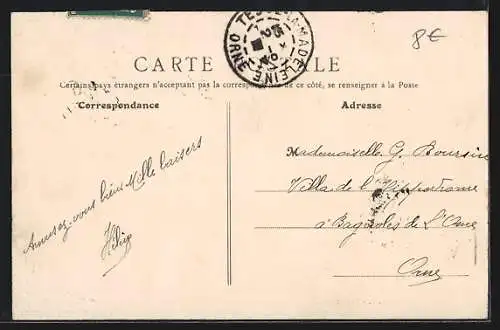 8€
TESSÉ-LA-MADELEINE
ORNE
CARTE POSTALE
Certains pays étrangers n'acceptant pas la correspondance de ce côté, se renseigner à la Poste
Correspondance
Adresse
Amusez-vous bien Mille baisers
Mademoiselle G. Boursin
Villa de l'Hippodrome
à Bagnoles de L'Orne
Orne